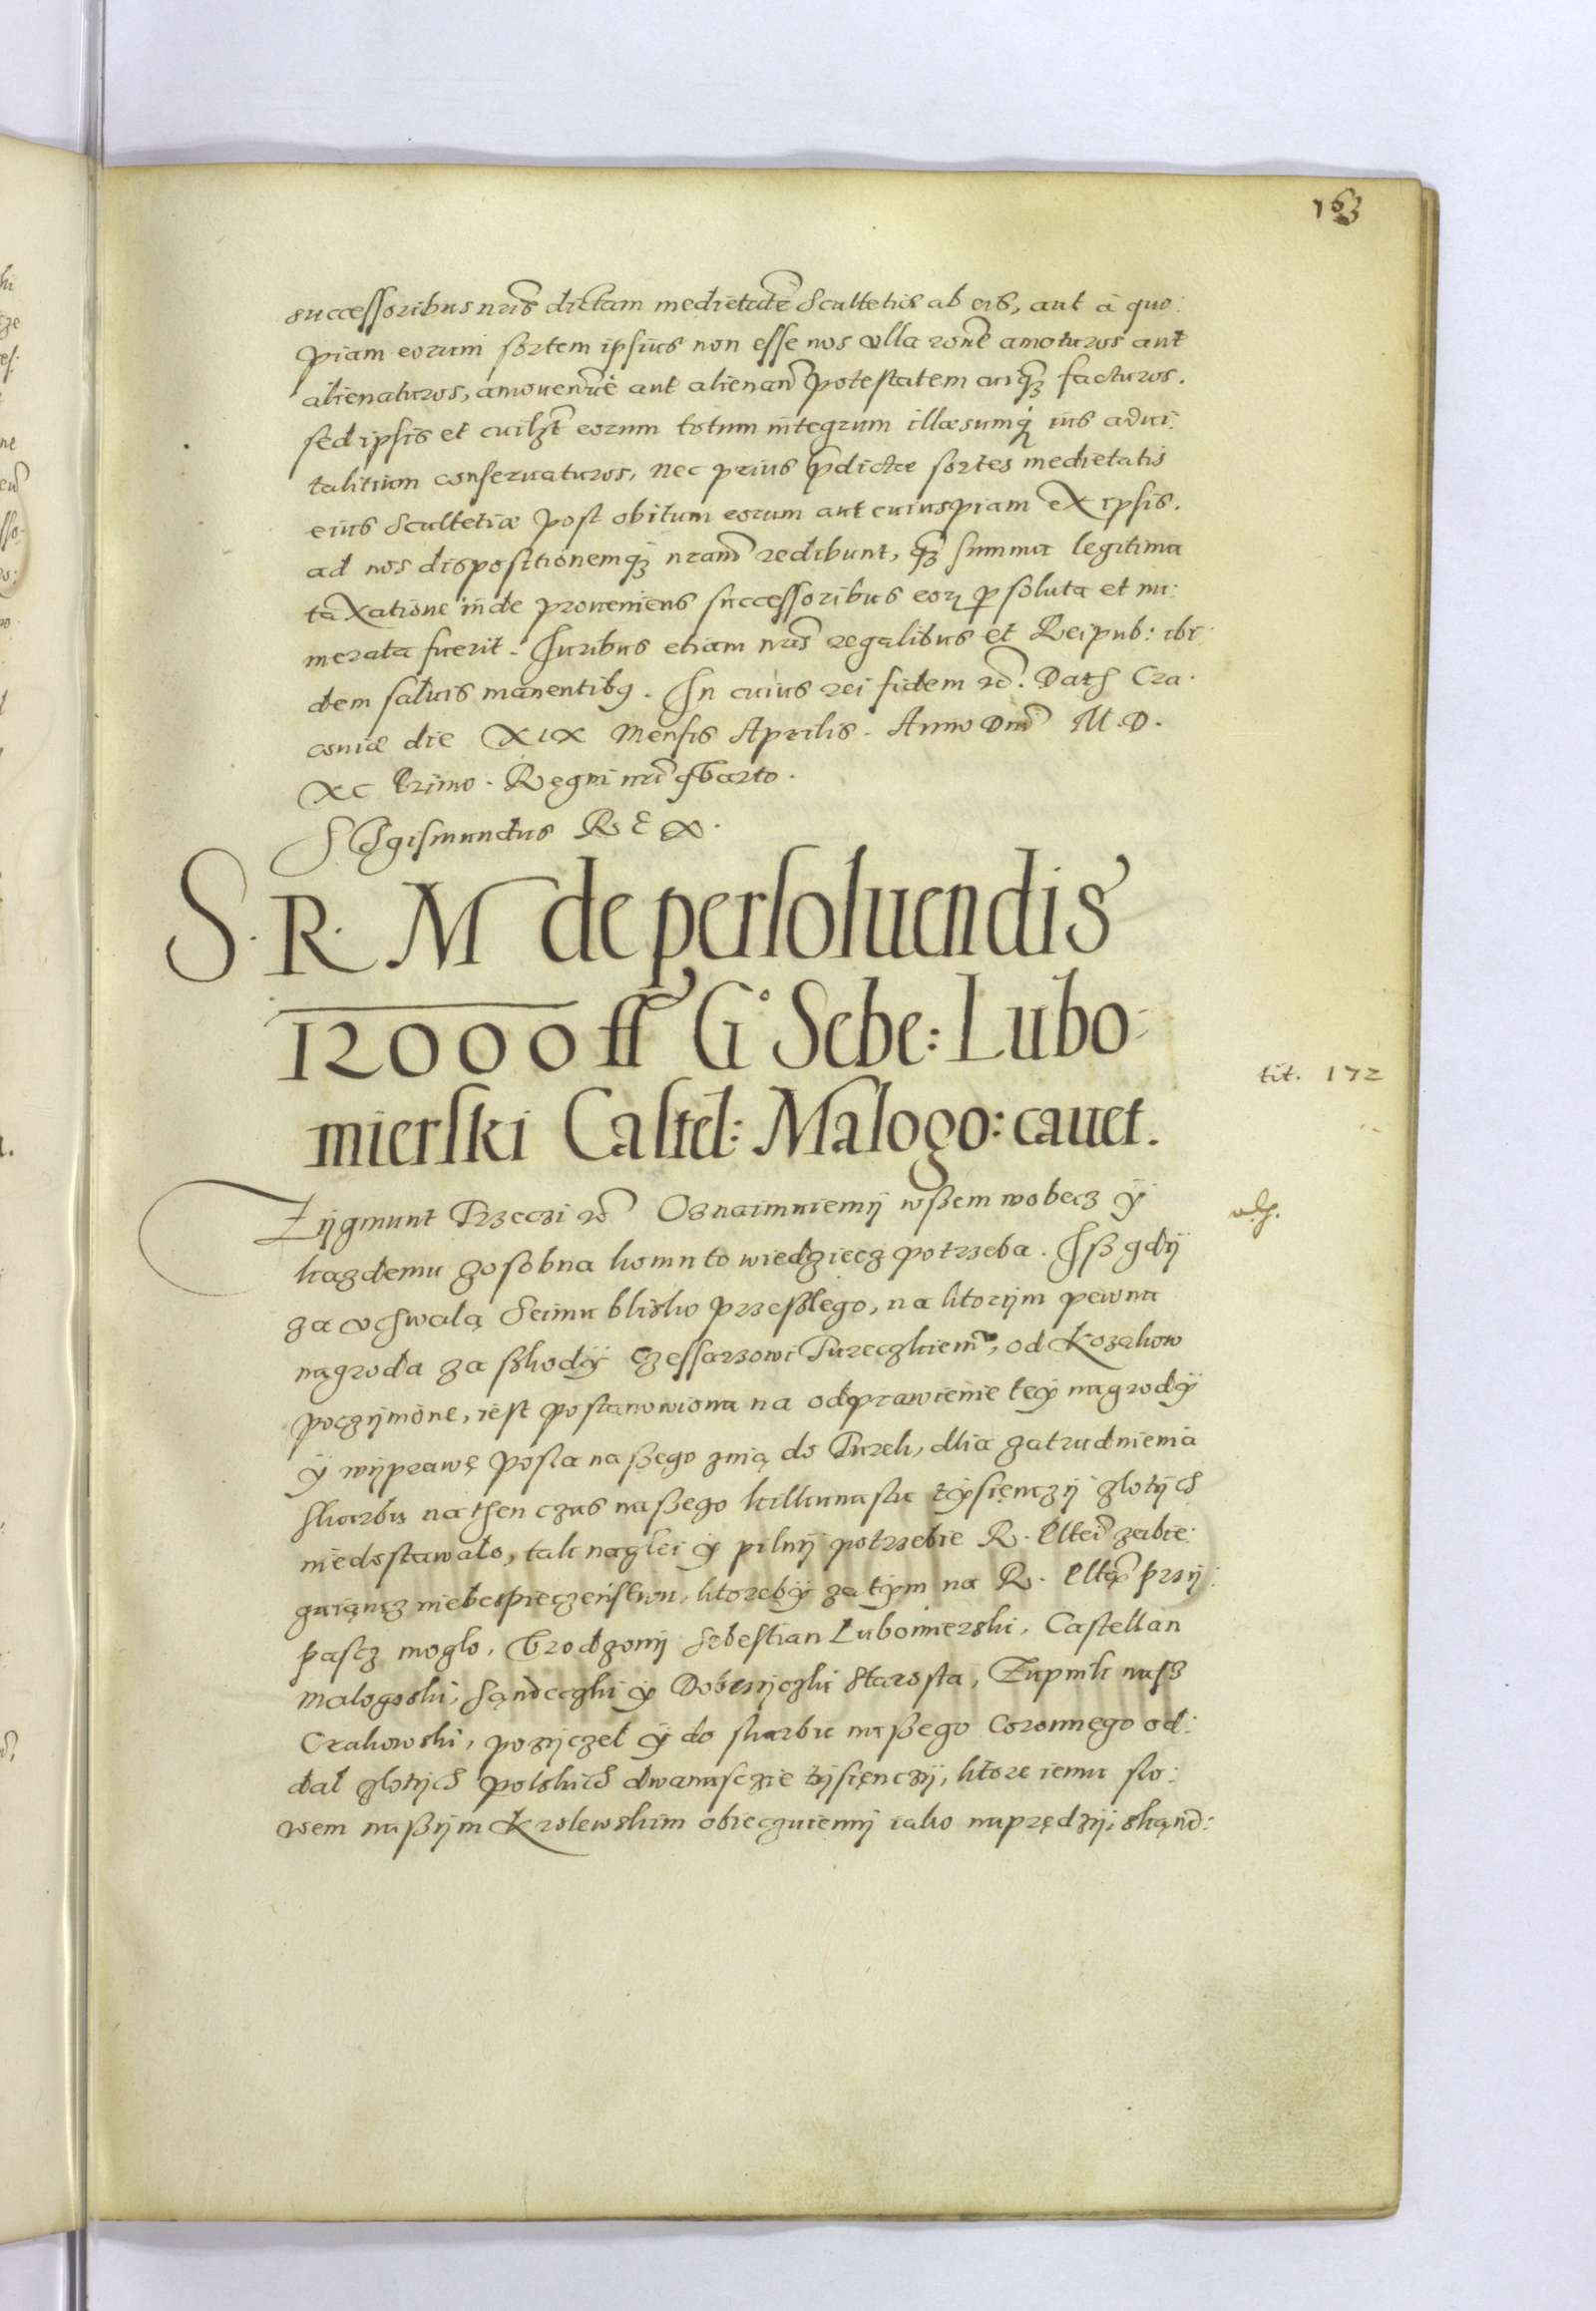 163
successoribus nris dictam medietate Scultetiæ ab eis, aut à quo:
piam eorum sortem ipsius non esse nos vlla rone amoturos aut
alienaturos, amouendiue aut alienandi potestatem cuiq3 facturos.
sed ipsis et cuilzt eorum totum integrum illæsumq3 ius aduí:
talitium conseruaturos, Nec prius pdictæ sortes medietatis
eius Scultetiæ post obitum eorum aut cuiuspiam ex ipsis.
ad nos dispositionemq3 nram redibunt, q3 summa legitima
taxatione inde proueniens successoribus eor psoluta et nu:
merata fuerit. Iuribus etiam nris regalibus et Reipub: ibi:
dem saluis manentib9. In cuius rei fidem etc. Dat Cra:
couiæ die XIX Mensis Aprilis. Anno Dni M.D.
XC Primo. Regni nri q̃varto.
Sigismundus REX.
S. R. M de persoluendis
12000 ff G° Sebe: Lubo:
mierski Castel: Malogo: cauet.
tit. 172
Zijgmunt Trzeczi etc Oznaimuiemÿ wßem wobecz ÿ
kazdemu zosobna komu to wiedziecz potrzeba. Iß gdÿ
za vchwałą Seimu blisko przeßłego, na ktorÿm pewna
nągroda za ßkodÿ Czessarzowi Tureczkiem, od Kozakow
poczÿnione, iest postanowiona na odprawienie teÿ nagrodÿ
ÿ wÿprawę Posła naßego znią do Turek, dlia zatrudnienia
skarbu nathen czas naßego kilkunastu tÿsięnczÿ złotÿch
niedostawało, tak nagłei ÿ pilnÿ potrzebie R. Pltei zabie:
guiąncz niebespieczeństwu, ktorebÿ zatÿm na R. Pltą przÿ:
paścz mogło, Vrodzonÿ Sebestian Lubomierski, Castellan
Malogoski, Sąndeczki ÿ Dobczÿczki Starosta, Zupnik nasz
Crakowski, pozÿczeł ÿ do skarbu naßego Coronnego od:
dał złotÿch polskich dwanasczie tÿsięnczÿ, ktore iemu sło:
wem naßÿm Krolewskim obieczuiemÿ iako naprędzÿ, skąnd: